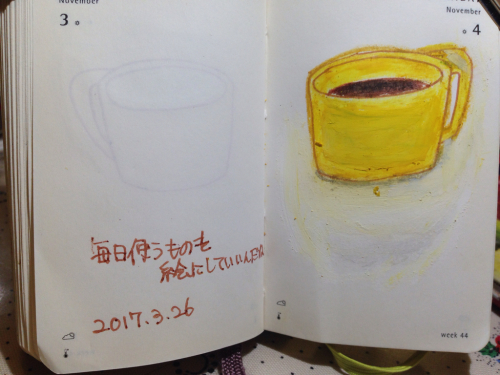 November
3
毎日使うものも
絵にしていいんだね
2017.3.26
November
4
week 44